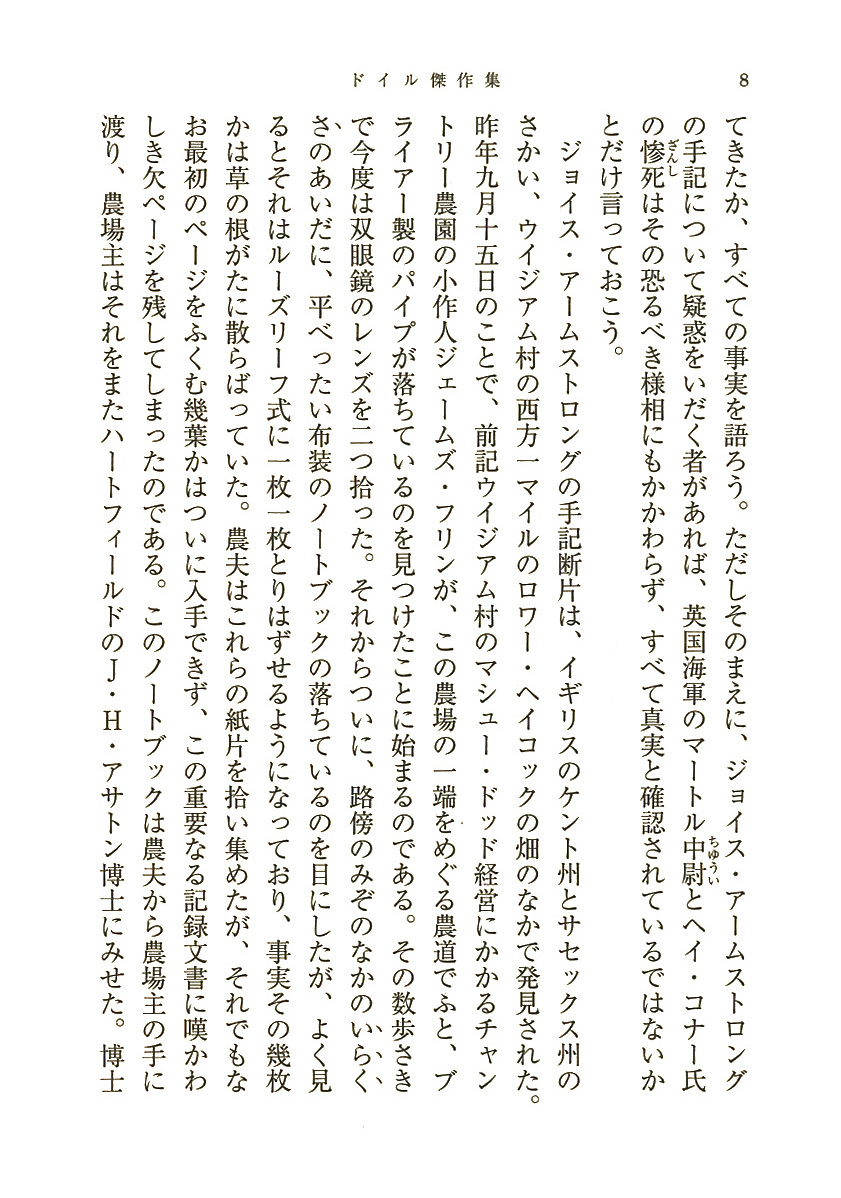 ドイル傑作集
8
てきたか、すべての事実を語ろう。ただしそのまえに、ジョイス・アームストロング
の手記について疑惑をいだく者があれば、英国海軍のマートル中尉とヘイ・コナー氏
の惨死はその恐るべき様相にもかかわらず、すべて真実と確認されているではないか
とだけ言っておこう。
ジョイス・アームストロングの手記断片は、イギリスのケント州とサセックス州の
さかい、ウイジアム村の西方一マイルのロワー・ヘイコックの畑のなかで発見された。
昨年九月十五日のことで、前記ウイジアム村のマシュー・ドッド経営にかかるチャン
トリー農園の小作人ジェームズ・フリンが、この農場の一端をめぐる農道でふと、ブ
ライアー製のパイプが落ちているのを見つけたことに始まるのである。その数歩さき
で今度は双眼鏡のレンズを二つ拾った。それからついに、路傍のみぞのなかのいらく
さのあいだに、平べったい布装のノートブックの落ちているのを目にしたが、よく見
るとそれはルーズリーフ式に一枚一枚とりはずせるようになっており、事実その幾枚
かは草の根がたに散らばっていた。農夫はこれらの紙片を拾い集めたが、それでもな
お最初のページをふくむ幾葉かはついに入手できず、この重要なる記録文書に嘆かわ
しき欠ページを残してしまったのである。このノートブックは農夫から農場主の手に
渡り、農場主はそれをまたハートフィールドのJ・H・アサトン博士にみせた。博士